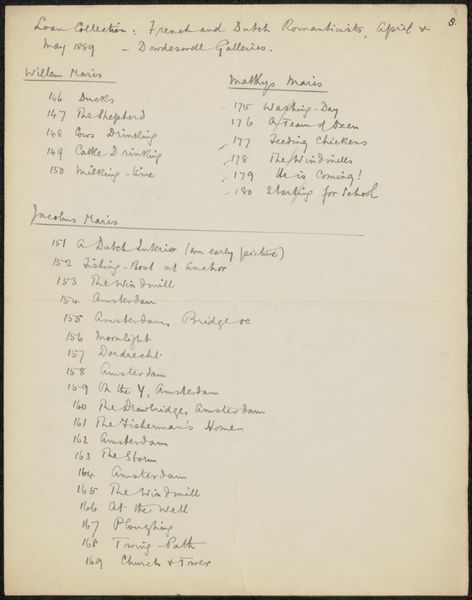 Loan Collection: French and Dutch Romanticists, April & 8.
May 1889 – Dowdeswell Galleries.
Willem Maris
146 Ducks
147 The Shepherd
148 Cows Drinking
149 Cattle Drinking
150 Milking-time
Matthys Maris
175 Washing-Day
176 A Team of Oxen
177 Feeding Chickens
178 The Windmills
179 He is Coming!
180 Starting for School
Jacobus Maris
151 A Dutch Interior (an early picture)
152 Fishing-Boat at Anchor
153 The Windmill
154 Amsterdam
155 Amsterdam, Bridge &c
156 Moonlight
157 Dordrecht
158 Amsterdam
159 On the Y, Amsterdam
160 The Drawbridge, Amsterdam
161 The Fisherman's Home
162 Amsterdam
163 The Storm
164 Amsterdam
165 The Windmill
166 At the Well
167 Ploughing
168 Towing-Path
169 Church & Tower